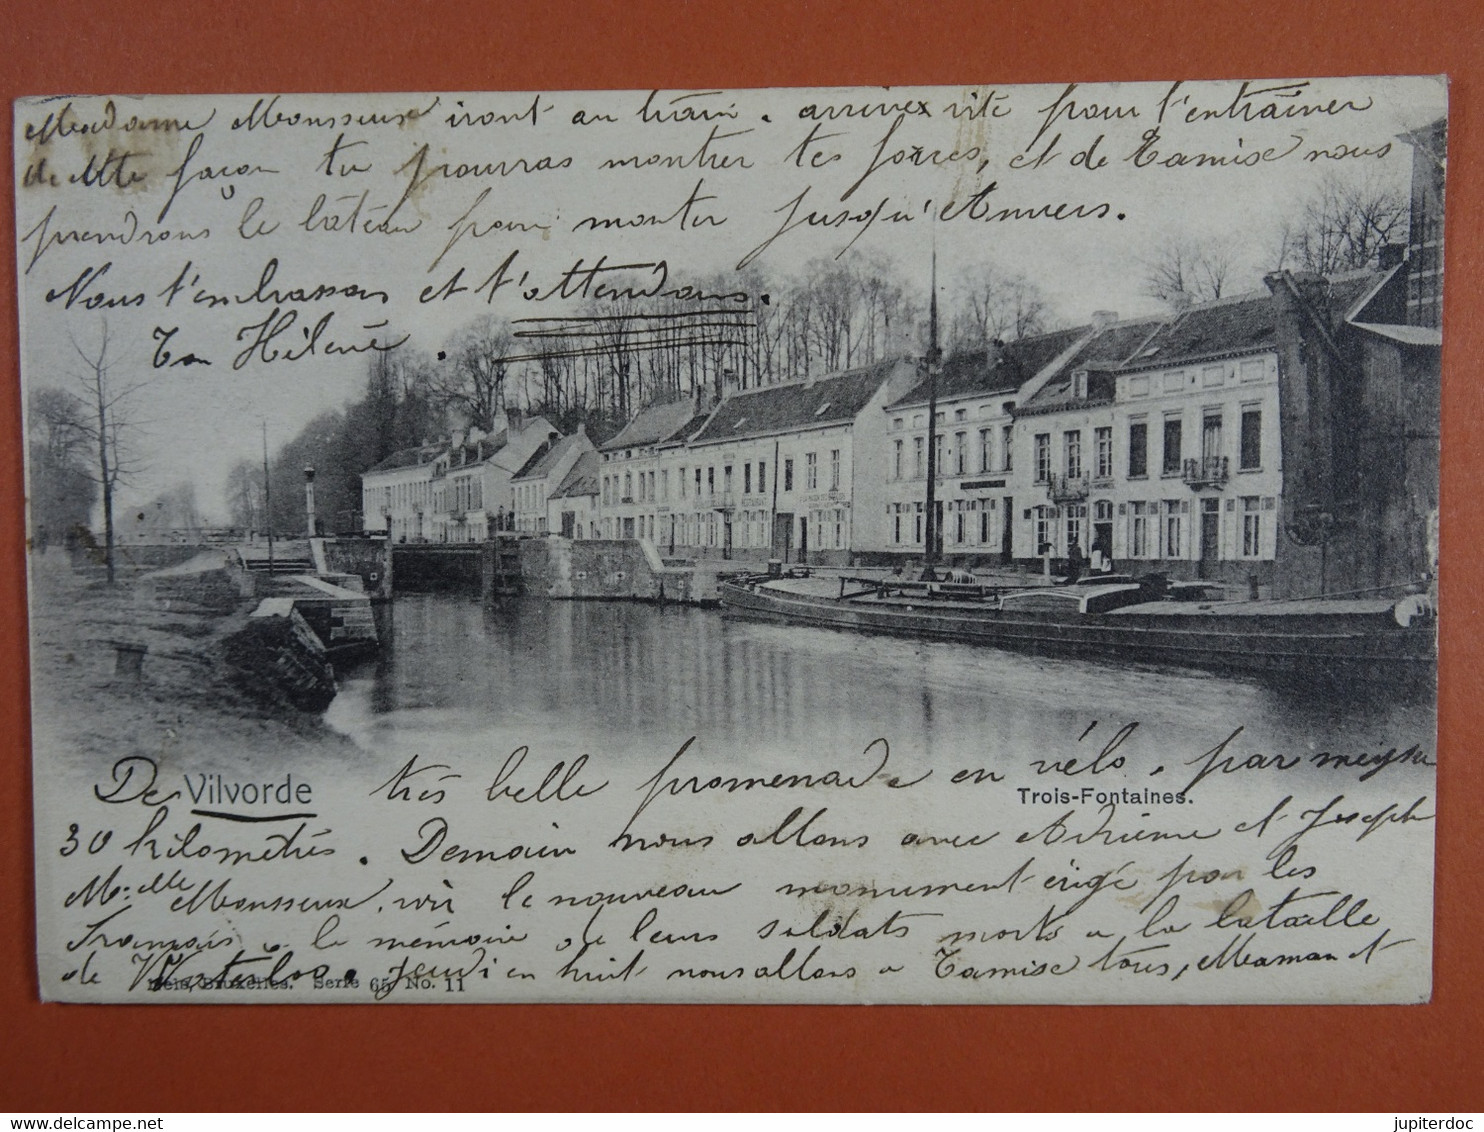 Madame Monsseux iront au train. arrivez vite pour t'entraîner
de cette façon tu pourras montrer tes forces, et de Tamise nous
prendrons le bâteau pour monter jusqu'Anvers.
Nous t'embrassons et t'attendons.
Ton Hélène.
RESTAURANT
De Vilvorde très belle promenade en vélo. par
Trois-Fontaines.
30 kilomètres. Demain nous allons avec Adrienne et Joseph
M.elle Monsseux, voir le nouveau monument érigé par les
Français à la mémoire de leurs soldats morts à la bataille
de Waterloo. jeudi en huit nous allons à Tamise tous, Maman et
Nels, Bruxelles. Serie 65 No. 11
jupiterdoc